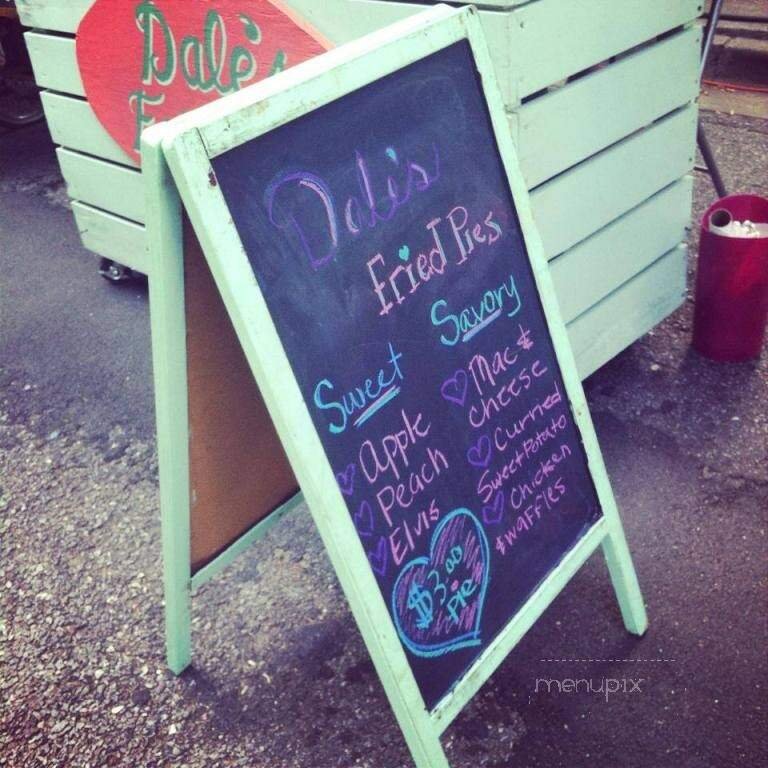 Dale's
F
Dale's
Fried Pies
Sweet
Apple
Peach
Elvis
Savory
Mac &
cheese
Curried
Sweet Potato
Chicken
& waffles
$3.00
pie
menupix